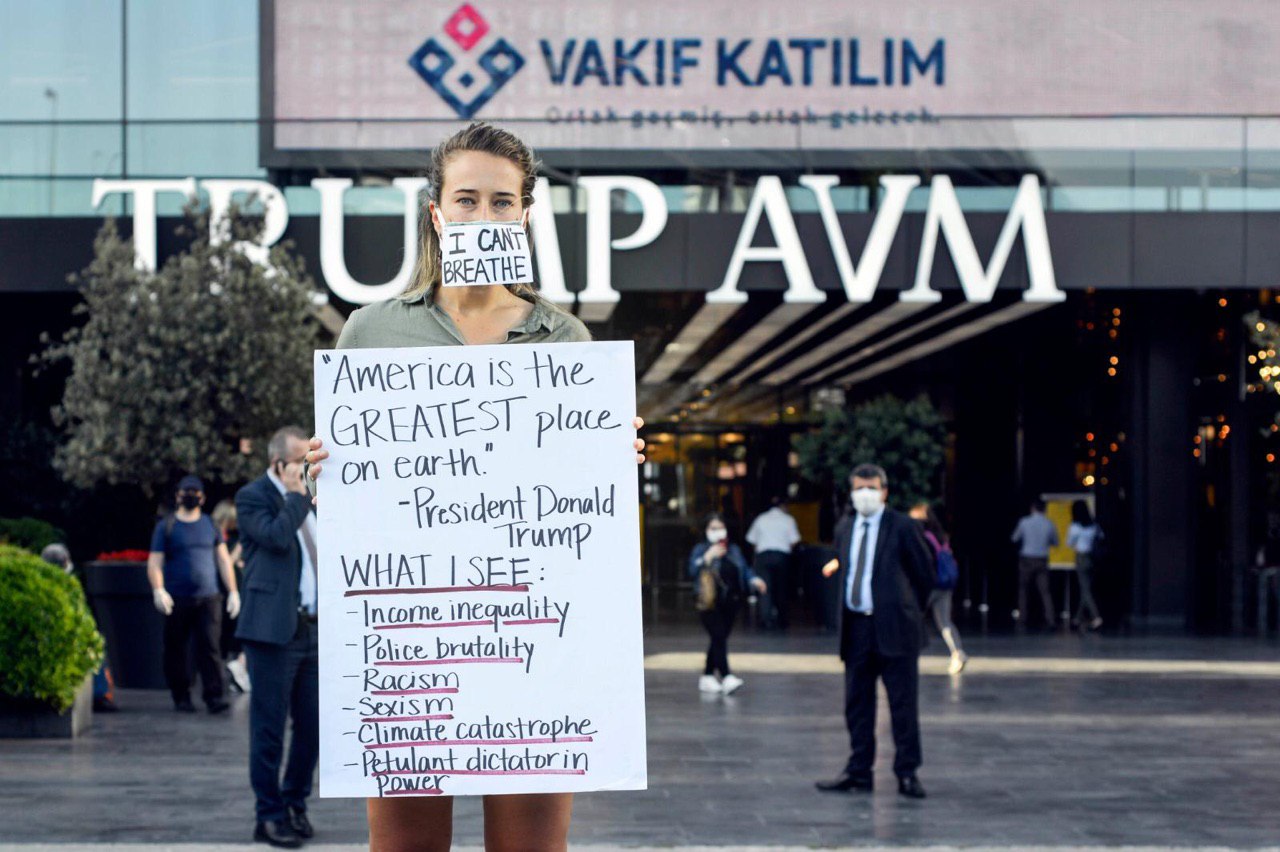 VAKIF KATILIM
Ortak geçmiş, ortak gelecek.
TRUMP AVM
I CAN'T
BREATHE
"America is the
GREATEST place
on earth."
-President Donald
Trump
WHAT I SEE:
- Income inequality
- Police brutality
- Racism
- Sexism
- Climate catastrophe
- Petulant dictator in
power